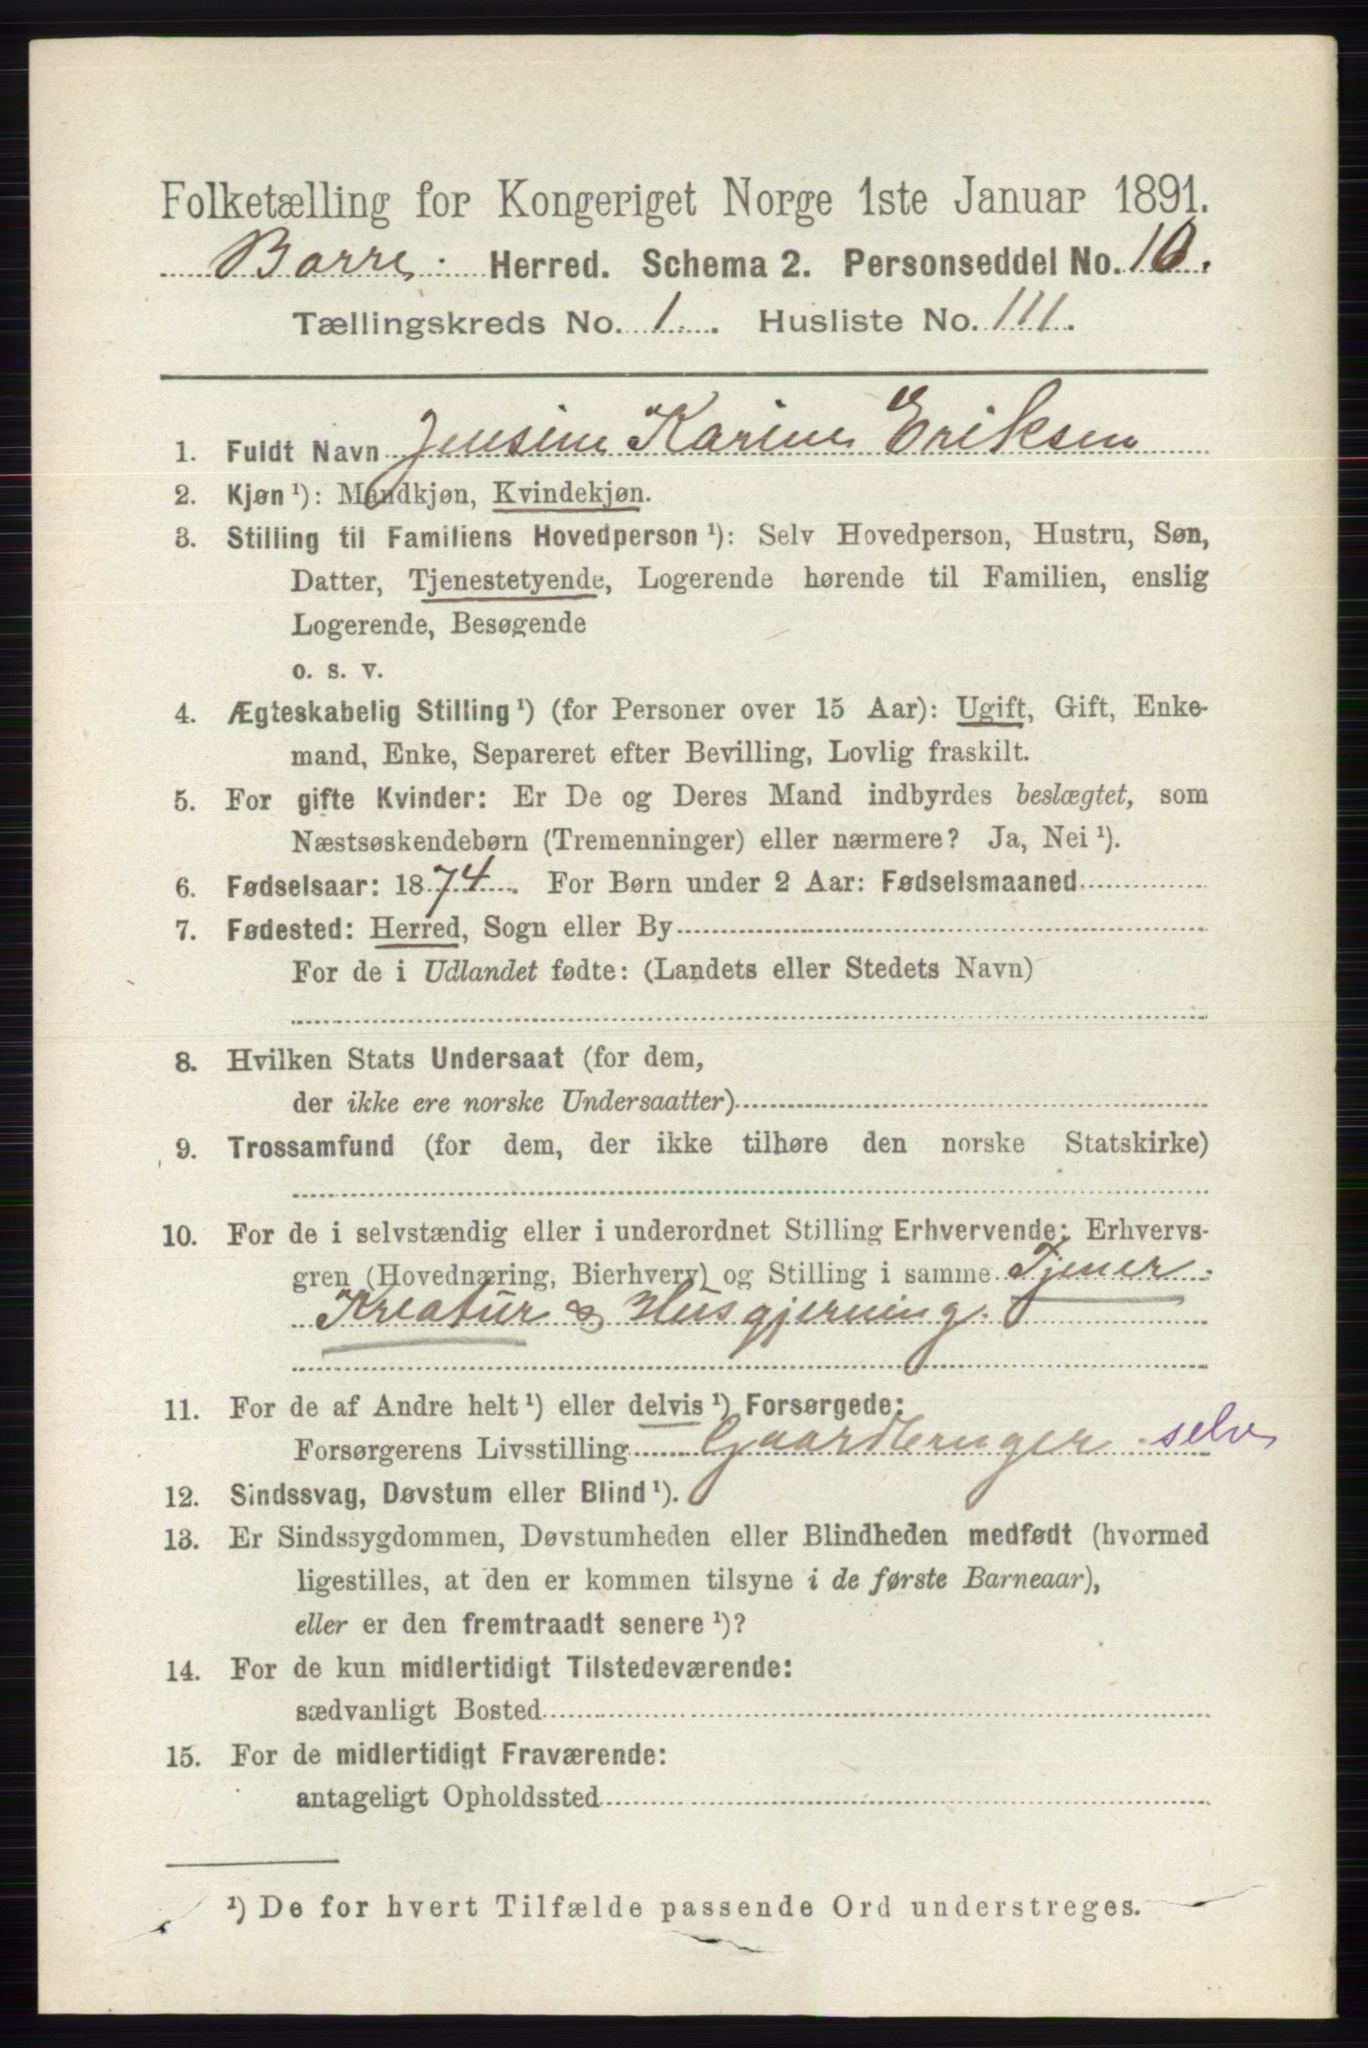 Folketælling for Kongeriget Norge 1ste Januar 1891.
Borre. Herred. Schema 2. Personseddel No. 10.
Tællingskreds No. 1. Husliste No. 111.
1. Fuldt Navn Jensine Karine Eriksen
2. Kjøn ¹): Mandkjøn, Kvindekjøn.
3. Stilling til Familiens Hovedperson ¹): Selv Hovedperson, Hustru, Søn,
Datter, Tjenestetyende, Logerende hørende til Familien, enslig
Logerende, Besøgende
o. s. v.
4. Ægteskabelig Stilling ¹) (for Personer over 15 Aar): Ugift, Gift, Enke-
mand, Enke, Separeret efter Bevilling, Lovlig fraskilt.
5. For gifte Kvinder: Er De og Deres Mand indbyrdes beslægtet, som
Næstsøskendebørn (Tremenninger) eller nærmere? Ja, Nei ¹).
6. Fødselsaar: 1874. For Børn under 2 Aar: Fødselsmaaned
7. Fødested: Herred, Sogn eller By
For de i Udlandet fødte: (Landets eller Stedets Navn)
8. Hvilken Stats Undersaat (for dem,
der ikke ere norske Undersaatter)
9. Trossamfund (for dem, der ikke tilhøre den norske Statskirke)
10. For de i selvstændig eller i underordnet Stilling Erhvervende: Erhvervs-
gren (Hovednæring, Bierhverv) og Stilling i samme Tjener.
Kreatur & Husgjerning.
11. For de af Andre helt ¹) eller delvis ¹) Forsørgede:
Forsørgerens Livsstilling Gaardbruger selv
12. Sindssvag, Døvstum eller Blind ¹).
13. Er Sindssygdommen, Døvstumheden eller Blindheden medfødt (hvormed
ligestilles, at den er kommen tilsyne i de første Barneaar),
eller er den fremtraadt senere ¹)?
14. For de kun midlertidigt Tilstedeværende:
sædvanligt Bosted
15. For de midlertidigt Fraværende:
antageligt Opholdssted
¹) De for hvert Tilfælde passende Ord understreges.